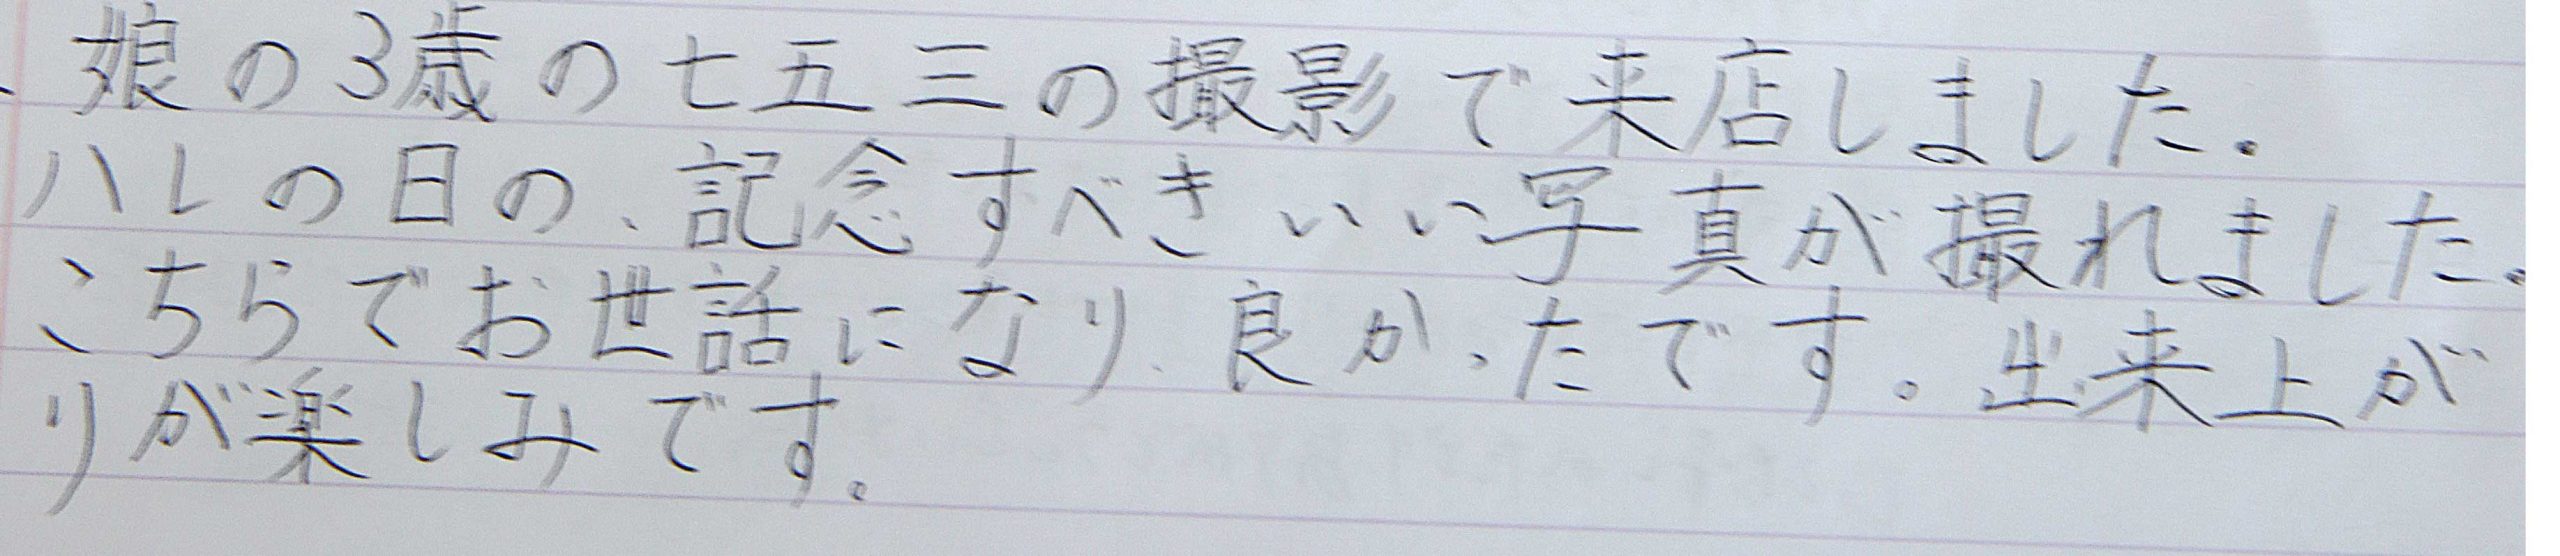 娘の3歳の七五三の撮影で来店しました。
ハレの日の、記念すべきいい写真が撮れました。
こちらでお世話になり、良かったです。出来上が
りが楽しみです。